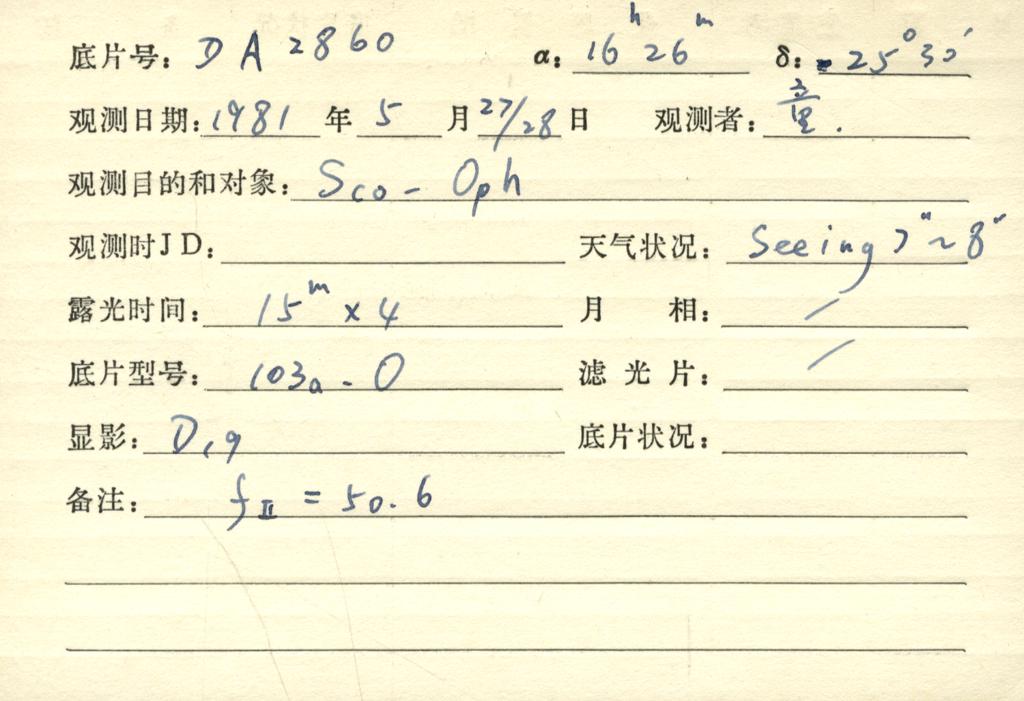 底片号: DA2860 α: 16h 26m δ: -25°30′
观测日期: 1981年5月27/28日 观测者: 童.
观测目的和对象: Sco - Oph
观测时JD: 天气状况: Seeing 7″~8″
露光时间: 15m × 4 月 相: /
底片型号: 103a-O 滤光片: /
显影: D19 底片状况:
备注: fII = 50.6